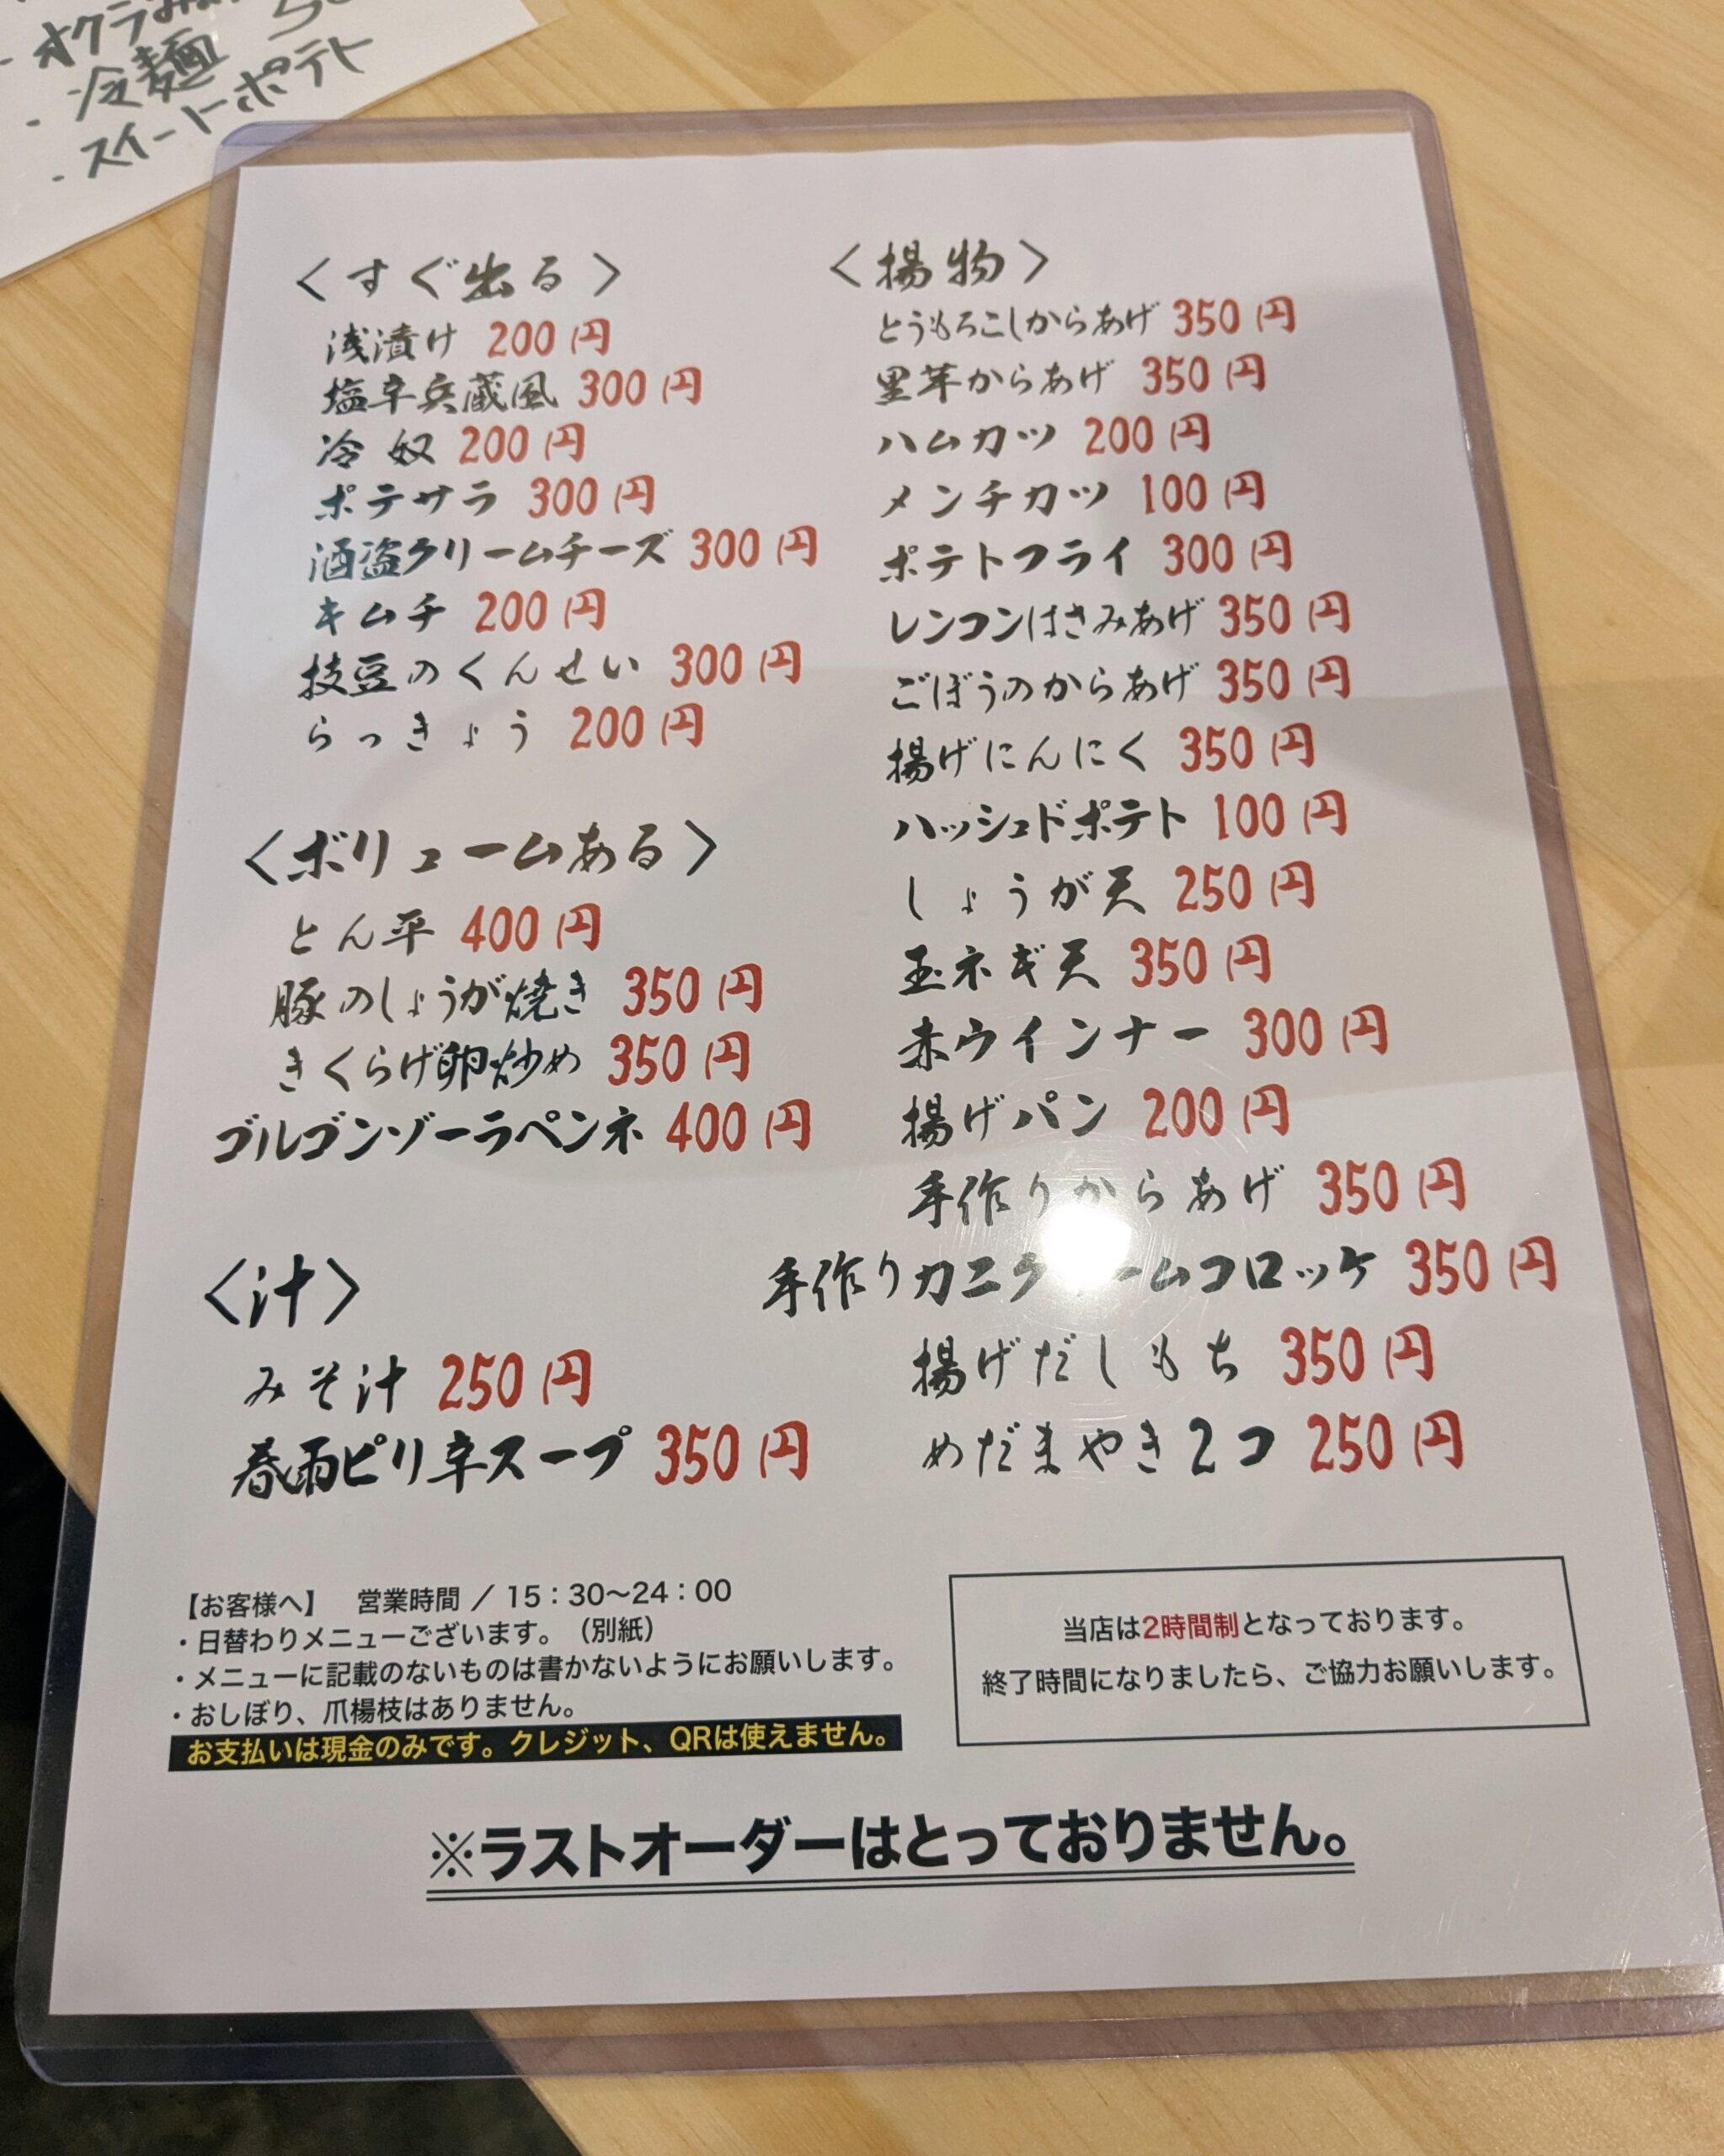 ・オクラ
・冷麺
・スイートポテト
〈すぐ出る〉
浅漬け 200円
塩辛兵蔵風 300円
冷奴 200円
ポテサラ 300円
酒盗クリームチーズ 300円
キムチ 200円
枝豆のくんせい 300円
らっきょう 200円
〈ボリュームある〉
とん平 400円
豚のしょうが焼き 350円
きくらげ卵炒め 350円
ゴルゴンゾーラペンネ 400円
〈汁〉
みそ汁 250円
春雨ピリ辛スープ 350円
〈揚物〉
とうもろこしからあげ 350円
里芋からあげ 350円
ハムカツ 200円
メンチカツ 100円
ポテトフライ 300円
レンコンはさみあげ 350円
ごぼうのからあげ 350円
揚げにんにく 350円
ハッシュドポテト 100円
しょうが天 250円
玉ネギ天 350円
赤ウインナー 300円
揚げパン 200円
手作りからあげ 350円
手作りカニクリームコロッケ 350円
揚げだしもち 350円
めだまやき2コ 250円
【お客様へ】 営業時間 / 15:30〜24:00
・日替わりメニューございます。（別紙）
・メニューに記載のないものは書かないようにお願いします。
・おしぼり、爪楊枝はありません。
お支払いは現金のみです。クレジット、QRは使えません。
当店は2時間制となっております。
終了時間になりましたら、ご協力お願いします。
※ラストオーダーはとっておりません。